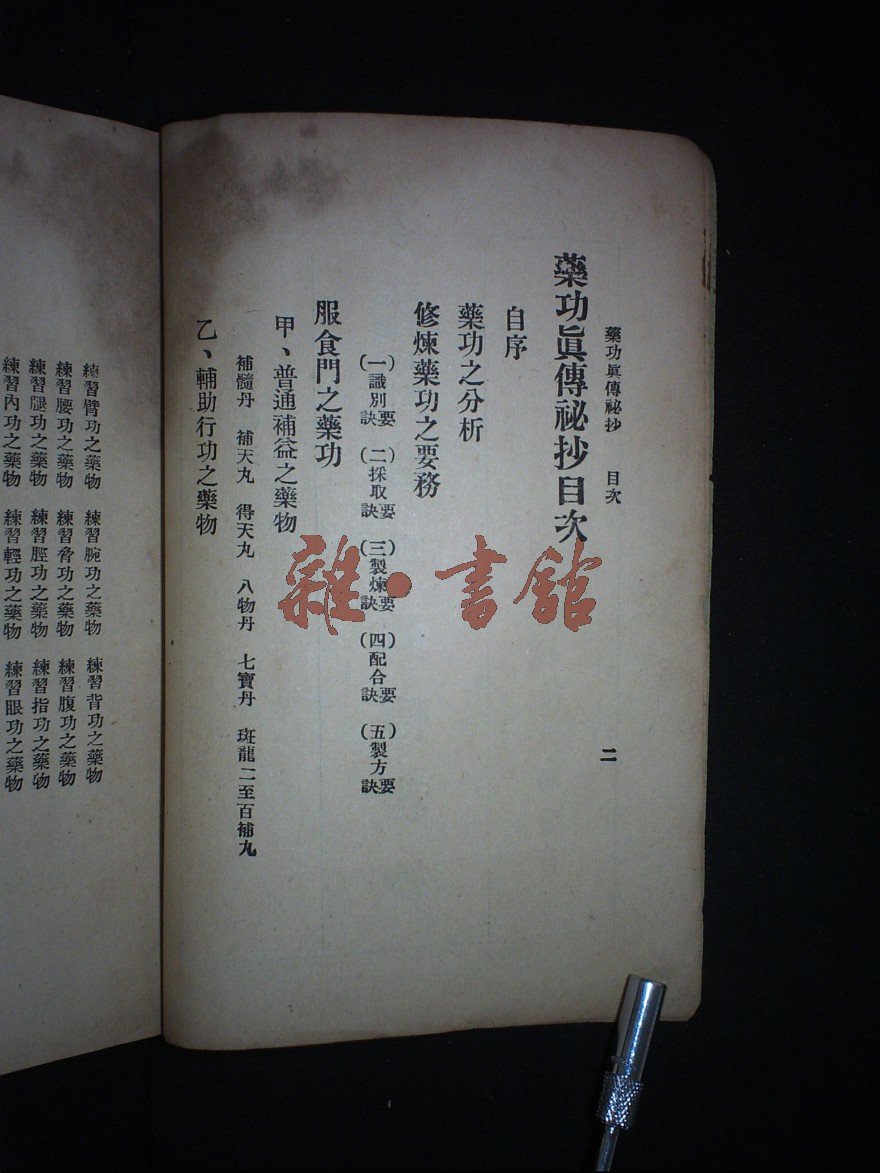 藥功眞傳祕抄　目次　二
藥功眞傳祕抄目次
自序
藥功之分析
修煉藥功之要務
(一識別要訣)　(二採取要訣)　(三製煉要訣)　(四配合要訣)　(五製方要訣)
服食門之藥功
甲、普通補益之藥物
補髓丹　補天丸　得天丸　八物丹　七寶丹　斑龍二至百補丸
乙、輔助行功之藥物
練習臂功之藥物　練習腕功之藥物　練習背功之藥物
練習腰功之藥物　練習脅功之藥物　練習腹功之藥物
練習腿功之藥物　練習脛功之藥物　練習指功之藥物
練習內功之藥物　練習輕功之藥物　練習眼功之藥物
雜·書館